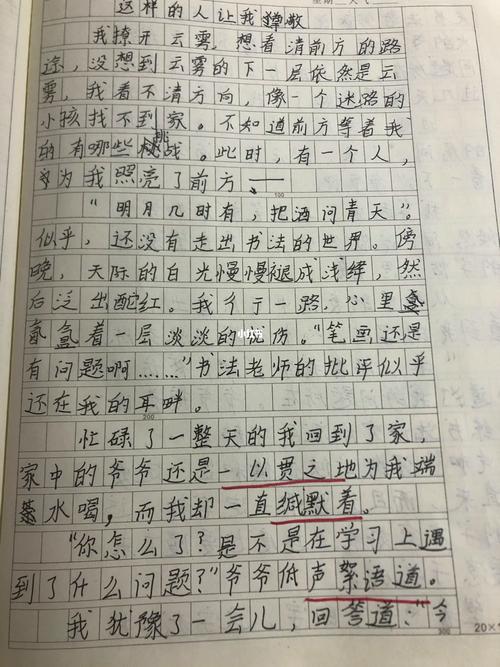 星期 天气
这样的人让我尊敬
我撩开云雾,想看清前方的路
途,没想到云雾的下一层依然是云
雾,我看不清方向,像一个迷路的
小孩找不到家。不知道前方等着我
的有哪些挑战。此时,有一个人,
为我照亮了前方——
100
“明月几时有,把酒问青天”。
似乎,还没有走出书法的世界。傍
晚,天际的白光慢慢褪成浅绛,然
后泛出酡红。我彳亍一路,心里
氤氲着一层淡淡的忧伤。“笔画还是
有问题啊……”书法老师的批评似乎
还在我的耳畔。
200
忙碌了一整天的我回到了家,
家中的爷爷还是一以贯之地为我端
水喝,而我却一直缄默着。
“你怎么了?是不是在学习上遇
到了什么问题?”爷爷低声絮语道。
我犹豫了一会儿,回答道:“今
300
20×